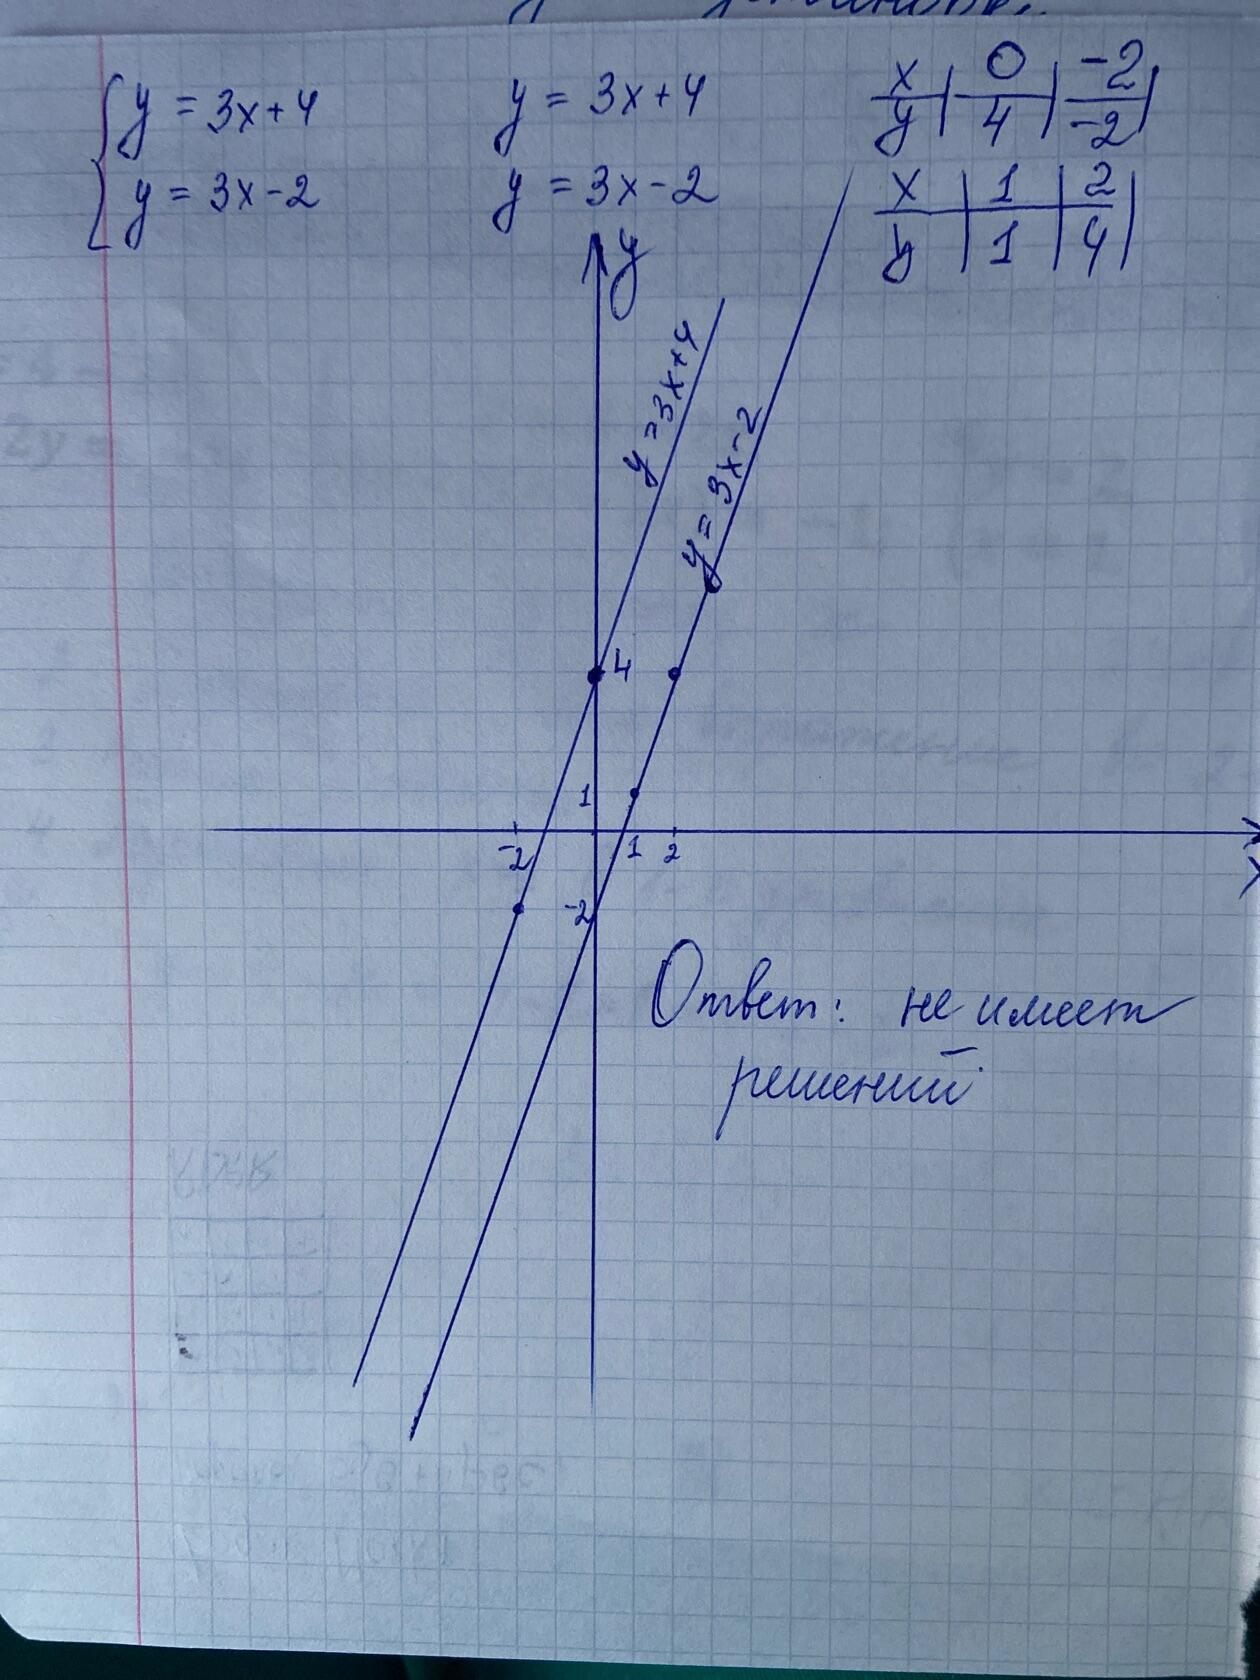 y = 3x+4 y = 3x+4 x 0 -2
y 4 -2
y = 3x-2 y = 3x-2 x 1 2
y 1 4
y
y = 3x+4
y = 3x-2
4
1
-2 1 2
x
-2
Ответ: не имеет
решений